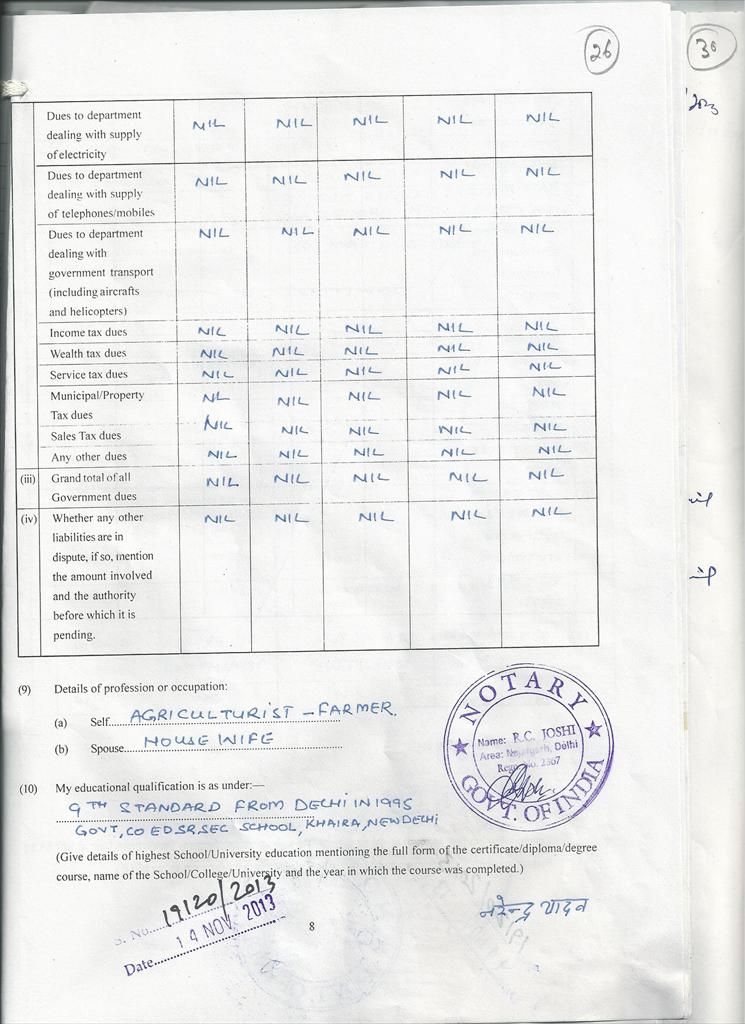 26
30
Dues to department NIL NIL NIL NIL NIL
dealing with supply
of electricity
Dues to department NIL NIL NIL NIL NIL
dealing with supply
of telephones/mobiles
Dues to department NIL NIL NIL NIL NIL
dealing with
government transport
(including aircrafts
and helicopters)
Income tax dues NIL NIL NIL NIL NIL
Wealth tax dues NIL NIL NIL NIL NIL
Service tax dues NIL NIL NIL NIL NIL
Municipal/Property NL NIL NIL NIL NIL
Tax dues
Sales Tax dues NIL NIL NIL NIL NIL
Any other dues NIL NIL NIL NIL NIL
(iii) Grand total of all NIL NIL NIL NIL NIL
Government dues
(iv) Whether any other NIL NIL NIL NIL NIL
liabilities are in
dispute, if so, mention
the amount involved
and the authority
before which it is
pending.
(9) Details of profession or occupation:
(a) Self AGRICULTURIST - FARMER.
(b) Spouse HOUSE WIFE
NOTARY
Name: R.C. JOSHI
Area: Najafgarh, Delhi
Regn. No. 2367
GOVT. OF INDIA
(10) My educational qualification is as under:—
9TH STANDARD FROM DELHI IN 1995
GOVT, CO ED SR, SEC SCHOOL, KHAIRA, NEW DELHI
(Give details of highest School/University education mentioning the full form of the certificate/diploma/degree
course, name of the School/College/University and the year in which the course was completed.)
S. No. 19120/2013
Date 14 NOV 2013
8
नरेन्द्र यादव